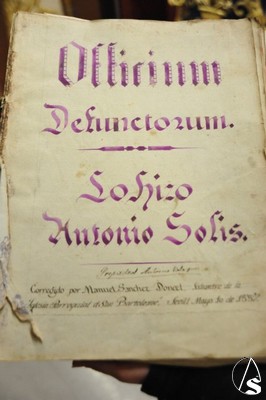 Officium
Defunctorum.
Lo hizo
Antonio Solis.
Propiedad Antonio
Corregido por Manuel Sanchez Sochantre de la
Iglesia Parroquial de San Bartolomé. Sevilla Mayo de 1880